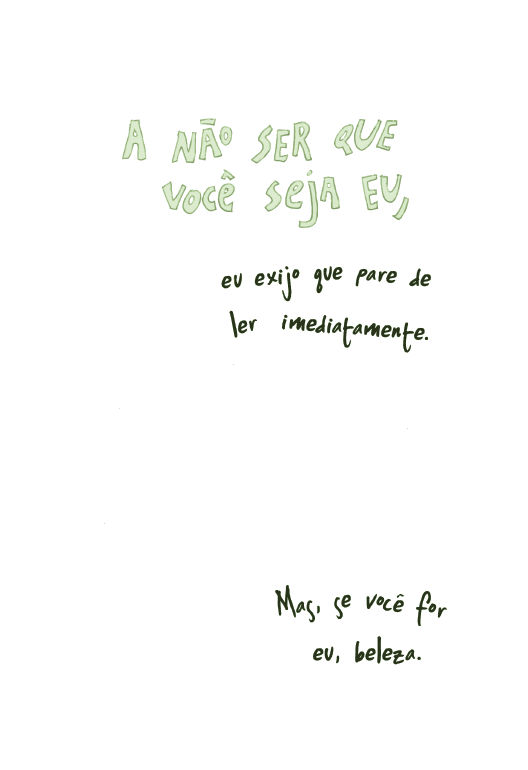 A NÃO SER QUE
VOCÊ SEJA EU,
eu exijo que pare de
ler imediatamente.
Mas, se você for
eu, beleza.